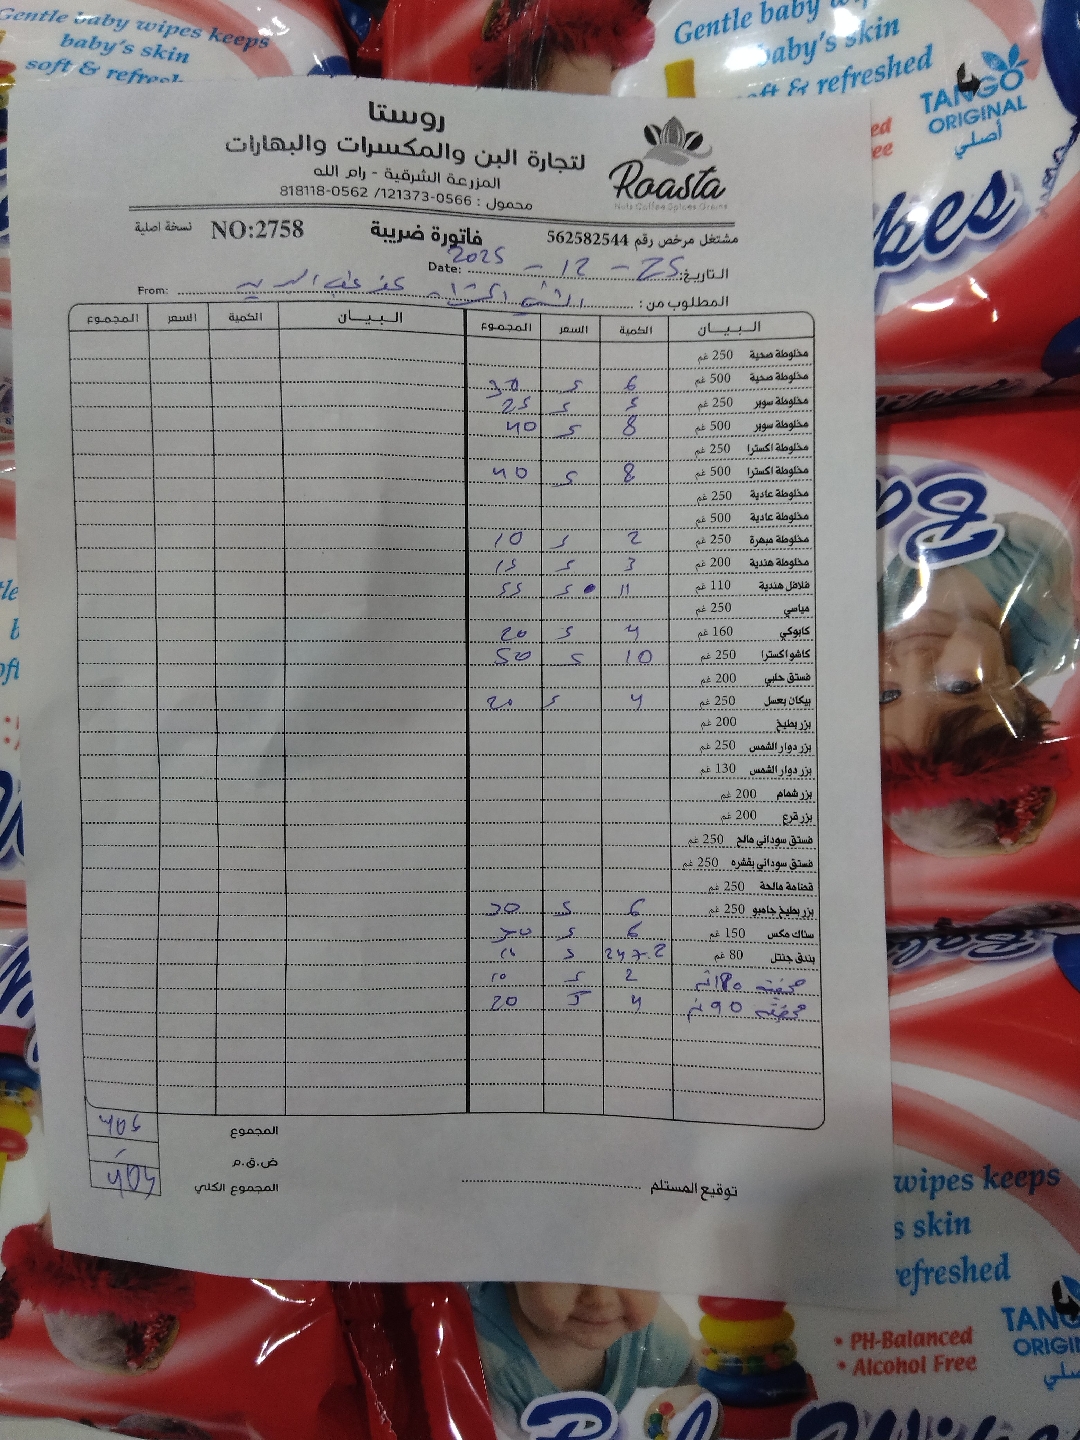 Gentle baby wipes keeps
baby's skin
soft & refresh
Gentle baby wip
baby's skin
soft & refreshed
TANGO
ORIGINAL
أصلي
ed
ee
pes
روستا
لتجارة البن والمكسرات والبهارات
المزرعة الشرقية - رام الله
محمول : 0566-121373/ 0562-818118
Roasta
Nuts Coffee Spices Grains
مشتغل مرخص رقم 562582544
فاتورة ضريبة
NO:2758
نسخة اصلية
التاريخ: 25 - 12 - 2025 Date:
المطلوب من : From:
البـيــان الكمية السعر المجموع البـيــان الكمية السعر المجموع
مخلوطة صحية 250 غم
مخلوطة صحية 500 غم 6 5 30
مخلوطة سوبر 250 غم 5 5 25
مخلوطة سوبر 500 غم 8 5 40
مخلوطة اكسترا 250 غم
مخلوطة اكسترا 500 غم 8 5 40
مخلوطة عادية 250 غم
مخلوطة عادية 500 غم
مخلوطة مبهرة 250 غم 2 5 10
مخلوطة هندية 200 غم 3 5 15
فلافل هندية 110 غم 11 5 55
مياسي 250 غم
كابوكي 160 غم 4 5 20
كاشو اكسترا 250 غم 10 5 50
فستق حلبي 200 غم
بيكان بعسل 250 غم 4 5 20
بزر بطيخ 200 غم
بزر دوار الشمس 250 غم
بزر دوار الشمس 130 غم
بزر شمام 200 غم
بزر قرع 200 غم
فستق سوداني مالح 250 غم
فستق سوداني بقشره 250 غم
قضامة مالحة 250 غم
بزر بطيخ جامبو 250 غم 6 5 30
سناك مكس 150 غم 6 5 30
بندق جنتل 80 غم 5
180 2 5 10
90 غم 4 5 20
المجموع 405
ض.ق.م
المجموع الكلي 405
توقيع المستلم
wipes keeps
s skin
refreshed
TANGO
ORIGIN
صلي
• PH-Balanced
• Alcohol Free